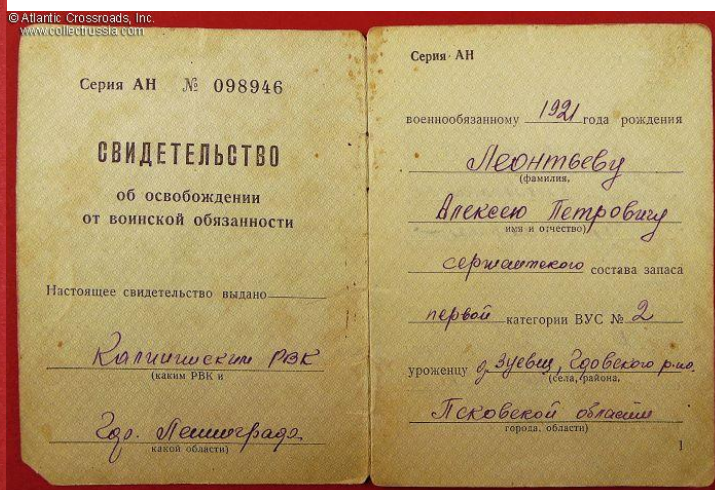 © Atlantic Crossroads, Inc.
www.collectrussia.com
Серия АН № 098946
СВИДЕТЕЛЬСТВО
об освобождении
от воинской обязанности
Настоящее свидетельство выдано
Калининским РВК
(каким РВК и
гор. Ленинграда
какой области)
Серия АН
военнообязанному 1921 года рождения
Леонтьеву
(фамилия,
Алексею Петровичу
имя и отчество)
сержантского состава запаса
первой категории ВУС № 2
уроженцу д. Зуевец, Гдовского р-на.
(села, района,
Псковской области
города, области)
1